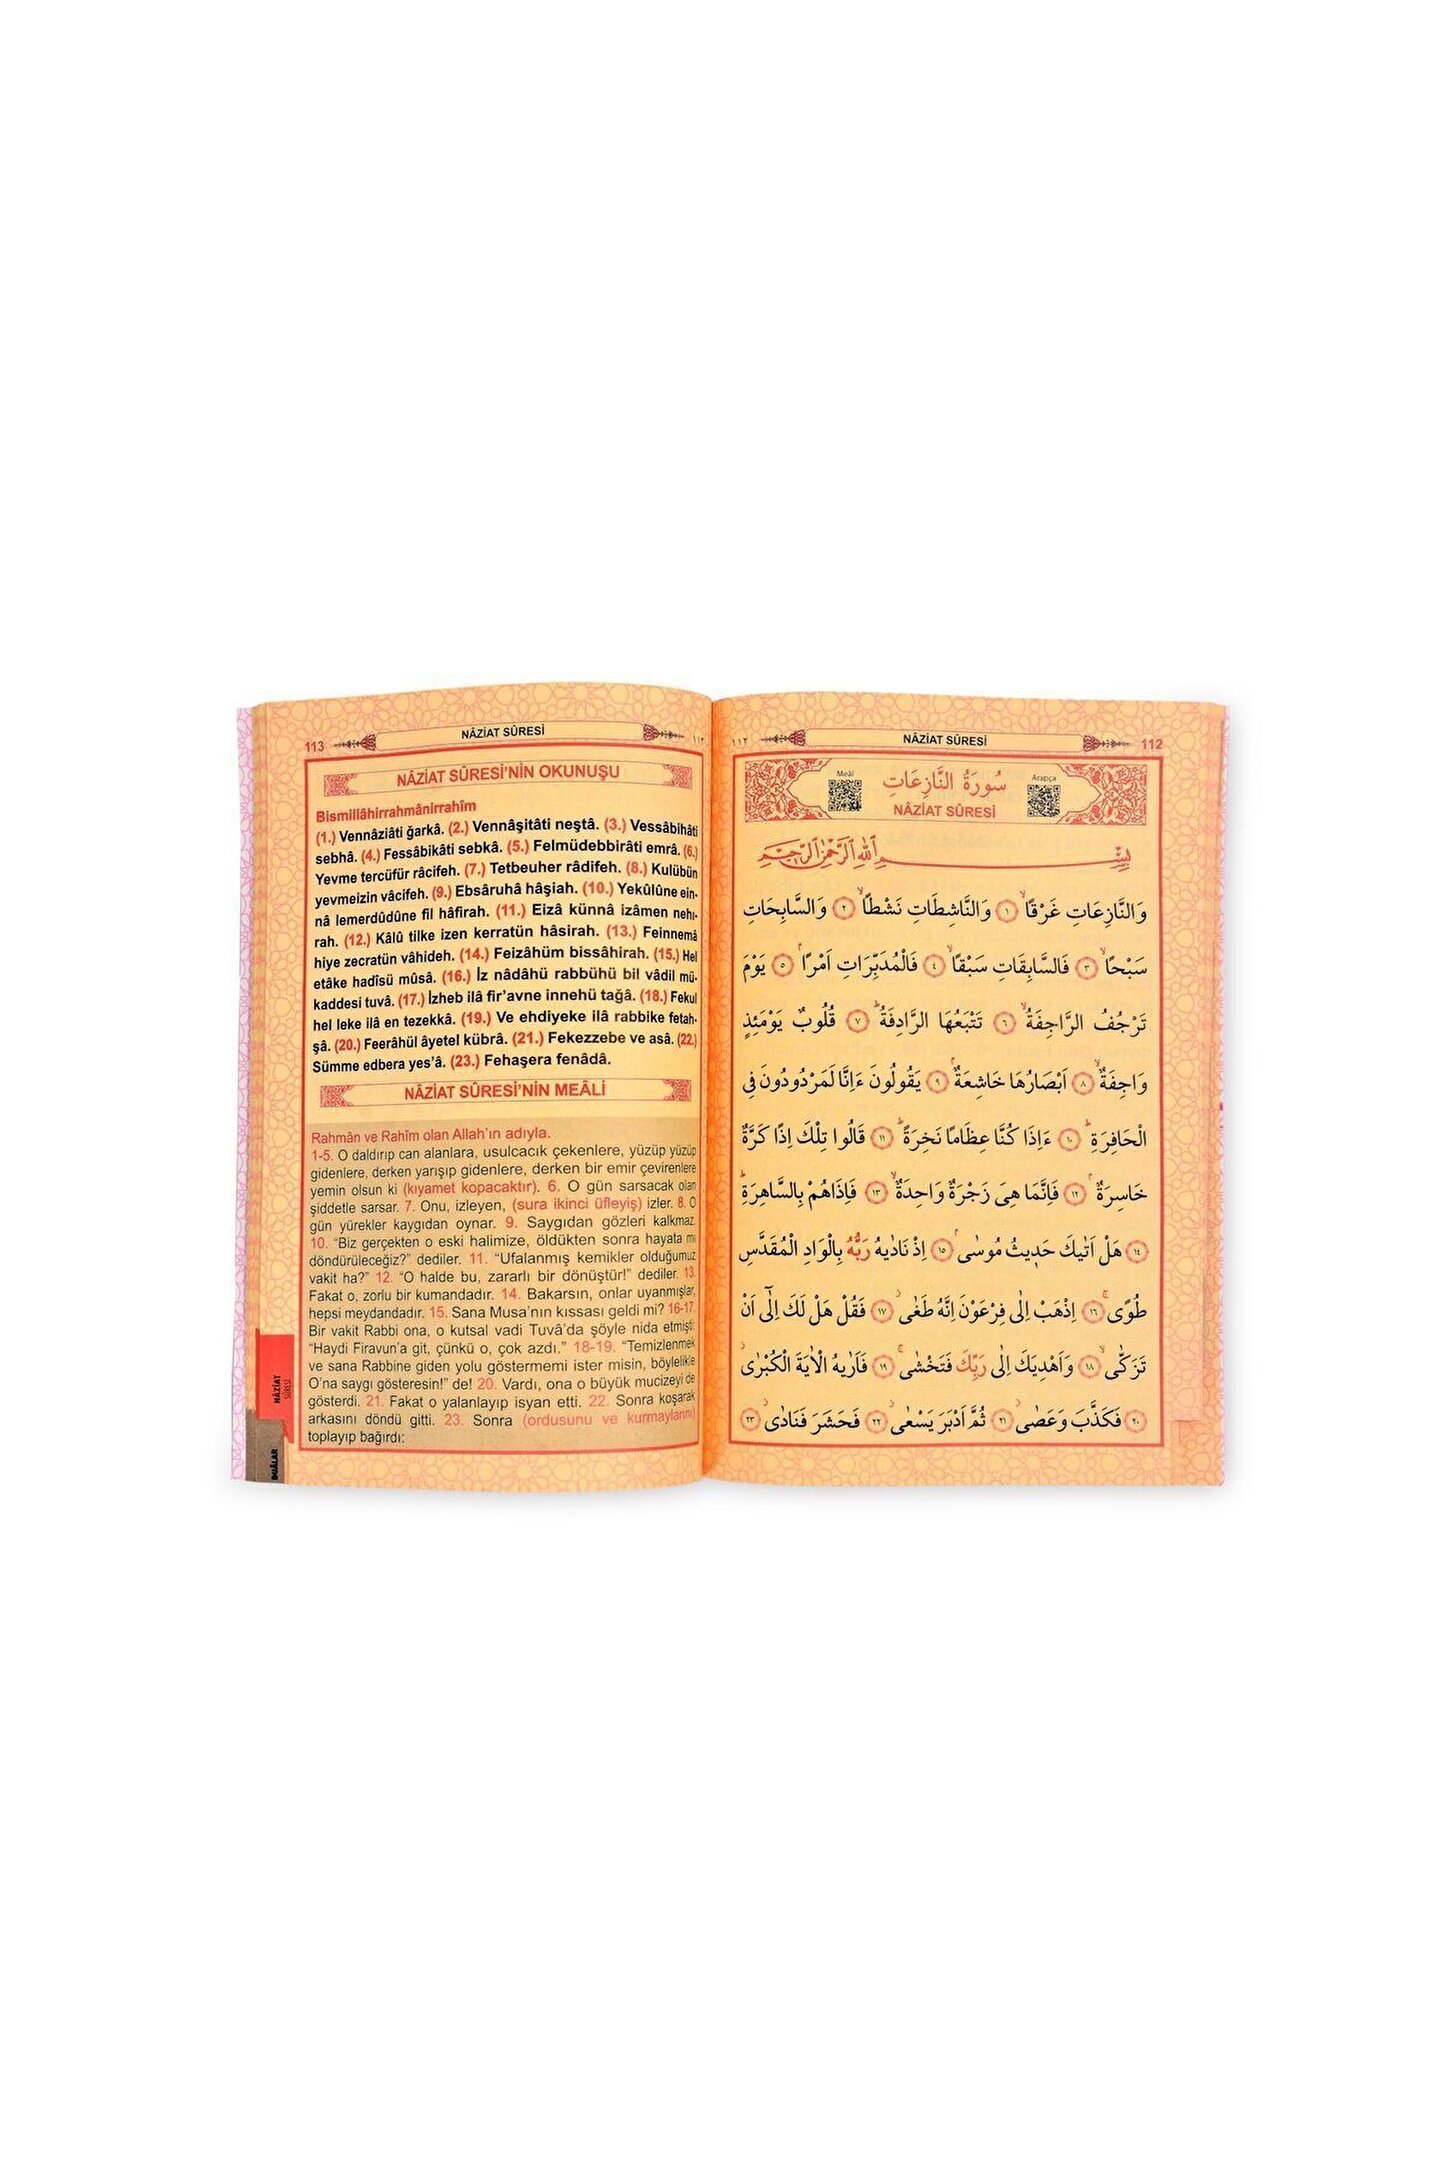 113 NÂZİAT SÛRESİ ١١٣
NÂZİAT SÛRESİ'NİN OKUNUŞU
Bismillâhirrahmânirrahîm
(1.) Vennâziâti ğarkâ. (2.) Vennâşitâti neştâ. (3.) Vessâbihâti
sebhâ. (4.) Fessâbikâti sebkâ. (5.) Felmüdebbirâti emrâ. (6.)
Yevme tercüfür râcifeh. (7.) Tetbeuher râdifeh. (8.) Kulübün
yevmeizin vâcifeh. (9.) Ebsâruhâ hâşiah. (10.) Yekûlûne ein-
nâ lemerdûdûne fil hâfirah. (11.) Eizâ künnâ izâmen nehı-
rah. (12.) Kâlû tilke izen kerratün hâsirah. (13.) Feinnemâ
hiye zecratün vâhideh. (14.) Feizâhüm bissâhirah. (15.) Hel
etâke hadîsü mûsâ. (16.) İz nâdâhü rabbühü bil vâdil mü-
kaddesi tuvâ. (17.) İzheb ilâ fir'avne innehü tağâ. (18.) Fekul
hel leke ilâ en tezekkâ. (19.) Ve ehdiyeke ilâ rabbike fetah-
şâ. (20.) Feerâhül âyetel kübrâ. (21.) Fekezzebe ve asâ. (22.)
Sümme edbera yes'â. (23.) Fehaşera fenâdâ.
NÂZİAT SÛRESİ'NİN MEÂLİ
Rahmân ve Rahîm olan Allah'ın adıyla.
1-5. O daldırıp can alanlara, usulcacık çekenlere, yüzüp yüzüp
gidenlere, derken yarışıp gidenlere, derken bir emir çevirenlere
yemin olsun ki (kıyamet kopacaktır). 6. O gün sarsacak olan
şiddetle sarsar. 7. Onu, izleyen, (sura ikinci üfleyiş) izler. 8. O
gün yürekler kaygıdan oynar. 9. Saygıdan gözleri kalkmaz.
10. “Biz gerçekten o eski halimize, öldükten sonra hayata mı
döndürüleceğiz?” dediler. 11. “Ufalanmış kemikler olduğumuz
vakit ha?” 12. “O halde bu, zararlı bir dönüştür!” dediler. 13.
Fakat o, zorlu bir kumandadır. 14. Bakarsın, onlar uyanmışlar,
hepsi meydandadır. 15. Sana Musa'nın kıssası geldi mi? 16-17.
Bir vakit Rabbi ona, o kutsal vadi Tuvâ'da şöyle nida etmişti:
“Haydi Firavun'a git, çünkü o, çok azdı.” 18-19. “Temizlenmek
ve sana Rabbine giden yolu göstermemi ister misin, böylelikle
O'na saygı gösteresin!” de! 20. Vardı, ona o büyük mucizeyi de
gösterdi. 21. Fakat o yalanlayıp isyan etti. 22. Sonra koşarak
arkasını döndü gitti. 23. Sonra (ordusunu ve kurmaylarını)
toplayıp bağırdı:
NÂZİAT
SÛRESİ
DUÂLAR
١١٢ NÂZİAT SÛRESİ 112
Meâl
Arapça
سُورَةُ النَّازِعَاتِ
NÂZİAT SÛRESİ
بِسْمِ اللّٰهِ الرَّحْمٰنِ الرَّح۪يمِ
وَالنَّازِعَاتِ غَرْقًاۙ ١ وَالنَّاشِطَاتِ نَشْطًاۙ ٢ وَالسَّابِحَاتِ
سَبْحًاۙ ٣ فَالسَّابِقَاتِ سَبْقًاۙ ٤ فَالْمُدَبِّرَاتِ اَمْرًاۢ ٥ يَوْمَ
تَرْجُفُ الرَّاجِفَةُۙ ٦ تَتْبَعُهَا الرَّادِفَةُۜ ٧ قُلُوبٌ يَوْمَئِذٍ
وَاجِفَةٌۙ ٨ اَبْصَارُهَا خَاشِعَةٌۢ ٩ يَقُولُونَ ءَاِنَّا لَمَرْدُودُونَ فِى
الْحَافِرَةِۜ ١٠ ءَاِذَا كُنَّا عِظَامًا نَخِرَةًۜ ١١ قَالُوا تِلْكَ اِذًا كَرَّةٌ
خَاسِرَةٌۢ ١٢ فَاِنَّمَا هِىَ زَجْرَةٌ وَاحِدَةٌۙ ١٣ فَاِذَاهُمْ بِالسَّاهِرَةِۜ
١٤ هَلْ اَتٰيكَ حَد۪يثُ مُوسٰىۢ ١٥ اِذْ نَادٰيهُ رَبُّهُ بِالْوَادِ الْمُقَدَّسِ
طُوًىۚ ١٦ اِذْهَبْ اِلٰى فِرْعَوْنَ اِنَّهُ طَغٰىۘ ١٧ فَقُلْ هَلْ لَكَ اِلٰٓى اَنْ
تَزَكّٰىۙ ١٨ وَاَهْدِيَكَ اِلٰى رَبِّكَ فَتَخْشٰىۚ ١٩ فَاَرٰيهُ الْاٰيَةَ الْكُبْرٰىۘ
٢٠ فَكَذَّبَ وَعَصٰىۘ ٢١ ثُمَّ اَدْبَرَ يَسْعٰىۘ ٢٢ فَحَشَرَ فَنَادٰىۘ ٢٣